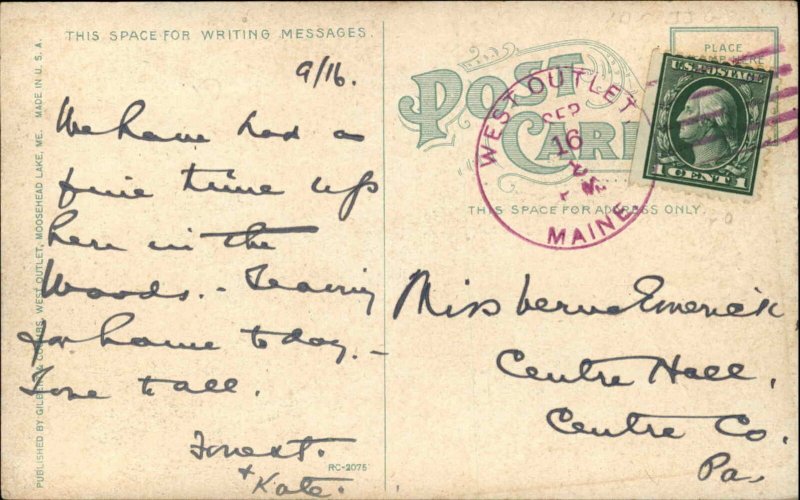 THIS SPACE FOR WRITING MESSAGES.
9/16.
We have had a
fine time up
here in the
Woods. - Leaving
for home today. -
Love to all.
Forrest.
+ Kate.
RC-2075
PUBLISHED BY GILBERT & COOMBS, WEST OUTLET, MOOSEHEAD LAKE, ME. MADE IN U.S.A.
POST CARD
PLACE
STAMP HERE
U.S. POSTAGE
1 CENT 1
WEST OUTLET
SEP
16
MAINE
THIS SPACE FOR ADDRESS ONLY.
Miss Verna Emerick
Centre Hall,
Centre Co.
Pa.